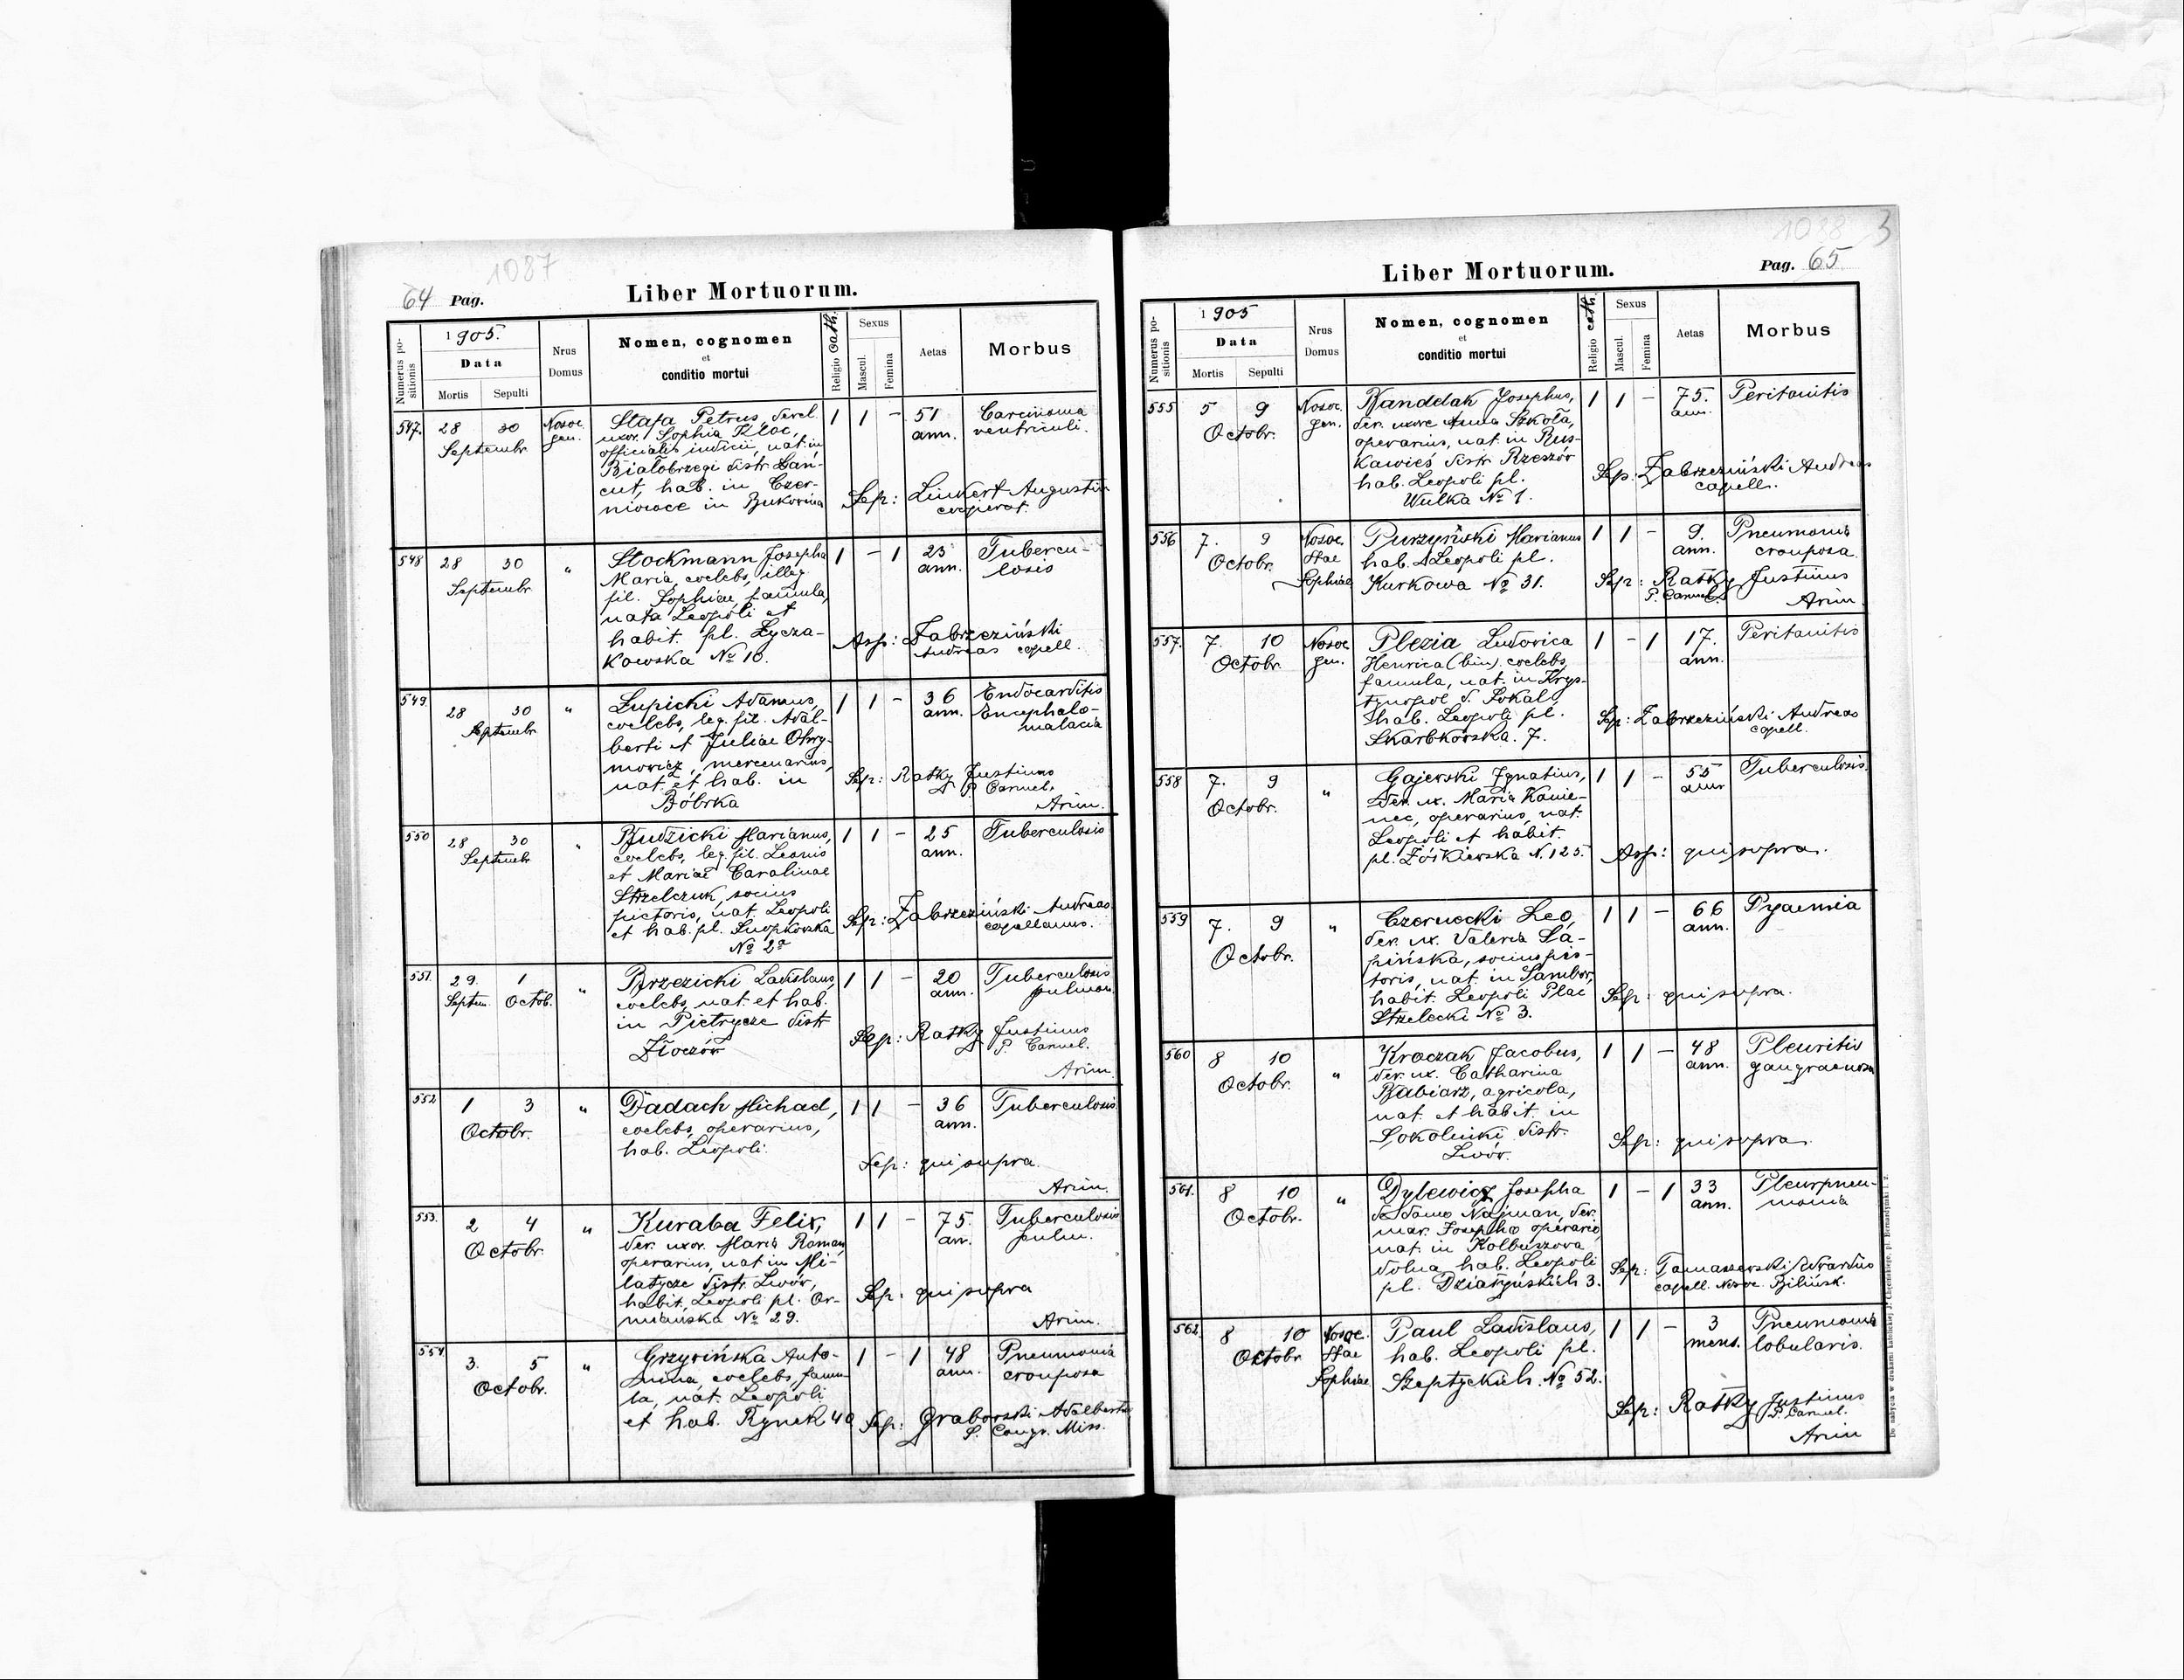 1087
64 Pag.
Liber Mortuorum.
Numerus positionis
1905.
Data
Mortis
Sepulti
Nrus Domus
Nomen, cognomen
et
conditio mortui
Religio cath.
Sexus
Mascul.
Femina
Aetas
Morbus
547. 28 30 Septembr. Nosoc. gen.
Stafa Petrus, derel.
uxor. Sophia Kloc,
officialis iudicii, nat. in
Białobrzegi distr. Łań-
cut, hab. in Czer-
niowce in Bukovina
1 1 - 51 ann.
Carcinoma
ventriculi.
Sep: Linkert Augustin
cooperat.
548 28 30 Septembr. "
Stockmann Josepha
Maria, coelebs, illeg.
fil. Sophiae, famula,
nata Leopoli et
habit. pl. Łycza-
kowska No 10.
1 - 1 23 ann.
Tubercu-
losis
Asp: Zabrzeziński
Andreas capell.
549. 28 30 Septembr. "
Łupicki Adamus,
coelebs, leg. fil. Adal-
berti et Juliae Ohry-
mowicz, mercenarius,
nat. et hab. in
Bóbrka
1 1 - 36 ann.
Endocarditis
Encephalo-
malacia
Sep: Ratky Justinus
P. Carmel.
Arim.
550 28 30 Septembr "
Budzicki Marianus,
coelebs, leg. fil. Leonis
et Mariae Carolinae
Strzelczuk, socius
pictoris, nat. Leopoli
et hab. pl. Snopkowska
No 2a
1 1 - 25 ann.
Tuberculosis
Sep: Zabrzeziński Andreas
capellanus.
551. 29. Septem. 1 Octob. "
Brzezicki Ladislaus,
coelebs, nat. et hab.
in Pietrycze distr
Złoczów
1 1 - 20 ann.
Tuberculosis
pulmon.
Sep: Ratky Justinus
P. Carmel.
Arim.
552 1 3 Octobr. "
Dadach Michael,
coelebs, operarius,
hab. Leopoli.
1 1 - 36 ann.
Tuberculosis.
Sep: qui supra.
Arim.
553. 2 4 Octobr. "
Kuraba Felix,
der. uxor. Maria Roman,
operarius, nat in Mi-
latycze distr. Lwów,
habit. Leopoli pl. Or-
miańska No 29.
1 1 - 75. an.
Tuberculosis
pulm.
Sep: qui supra
Arim.
554. 3. 5 Octobr. "
Grzywińska Anto-
nina, coelebs, famu-
la, nat. Leopoli
et hab. Rynek 40
1 - 1 48 ann.
Pneumonia
crouposa
Sep: Grabowski Adalbertus
P. Congr. Miss.
1088
3
Liber Mortuorum.
Pag. 65
Numerus positionis
1905
Data
Mortis
Sepulti
Nrus Domus
Nomen, cognomen
et
conditio mortui
Religio cath.
Sexus
Mascul.
Femina
Aetas
Morbus
555 5 9 Octobr. Nosoc. gen.
Bandelak Josephus,
der. uxore Anna Szkoła,
operarius, nat. in Rus-
kawieś distr. Rzeszów
hab. Leopoli pl.
Wulka No 1.
1 1 - 75. ann.
Peritonitis
Sep: Zabrzeziński Andreas
capell.
556 7. 9 Octobr. Nosoc. Stae Sophiae
Purzyński Marianus
hab. Leopoli pl.
Kurkowa No 31.
1 1 - 9. ann.
Pneumonia
crouposa.
Sep: Ratky Justinus
P. Carmel.
Arim.
557. 7. 10 Octobr. Nosoc. gen.
Plezia Ludovica
Henrica (bin). coelebs,
famula, nat. in Krys-
tynopol d. Sokal,
hab. Leopoli pl.
Skarbkowska. 7.
1 - 1 17. ann.
Peritonitis
Sep: Zabrzeziński Andreas
capell.
558 7. 9 Octobr. "
Gajewski Ignatius,
der. ux. Maria Kamie-
nec, operarius, nat.
Leopoli et habit.
pl. Żółkiewska N. 125.
1 1 - 55 ann
Tuberculosis.
Asp: qui supra.
559 7. 9 Octobr. "
Czernecki Leo,
der. ux. Valeria Ła-
pińska, socius pis-
toris, nat. in Sambor,
habit. Leopoli Plac
Strzelecki No 3.
1 1 - 66 ann.
Pyaemia
Sep: qui supra.
560 8 10 Octobr. "
Kroczak Jacobus,
der. ux. Catharina
Babiarz, agricola,
nat. et habit. in
Sokolniki distr.
Lwów.
1 1 - 48 ann.
Pleuritis
gangraenosa
Sep: qui supra.
561. 8 10 Octobr. "
Dylewicz Josepha
de domo Najman, der.
mar. Josepho operario,
nat. in Kolbuszowa
dolna hab. Leopoli
pl. Działyńskich 3.
1 - 1 33 ann.
Pleurpneu-
monia
Sep: Tomaszewski Edvardus
capell. Nosoc. Bilińsk.
562. 8 10 Octobr Nosoc. Stae Sophiae
Paul Ladislaus,
hab. Leopoli pl.
Szeptyckich. No 52.
1 1 - 3 mens.
Pneumonia
lobularis.
Sep: Ratky Justinus
P. Carmel.
Arim